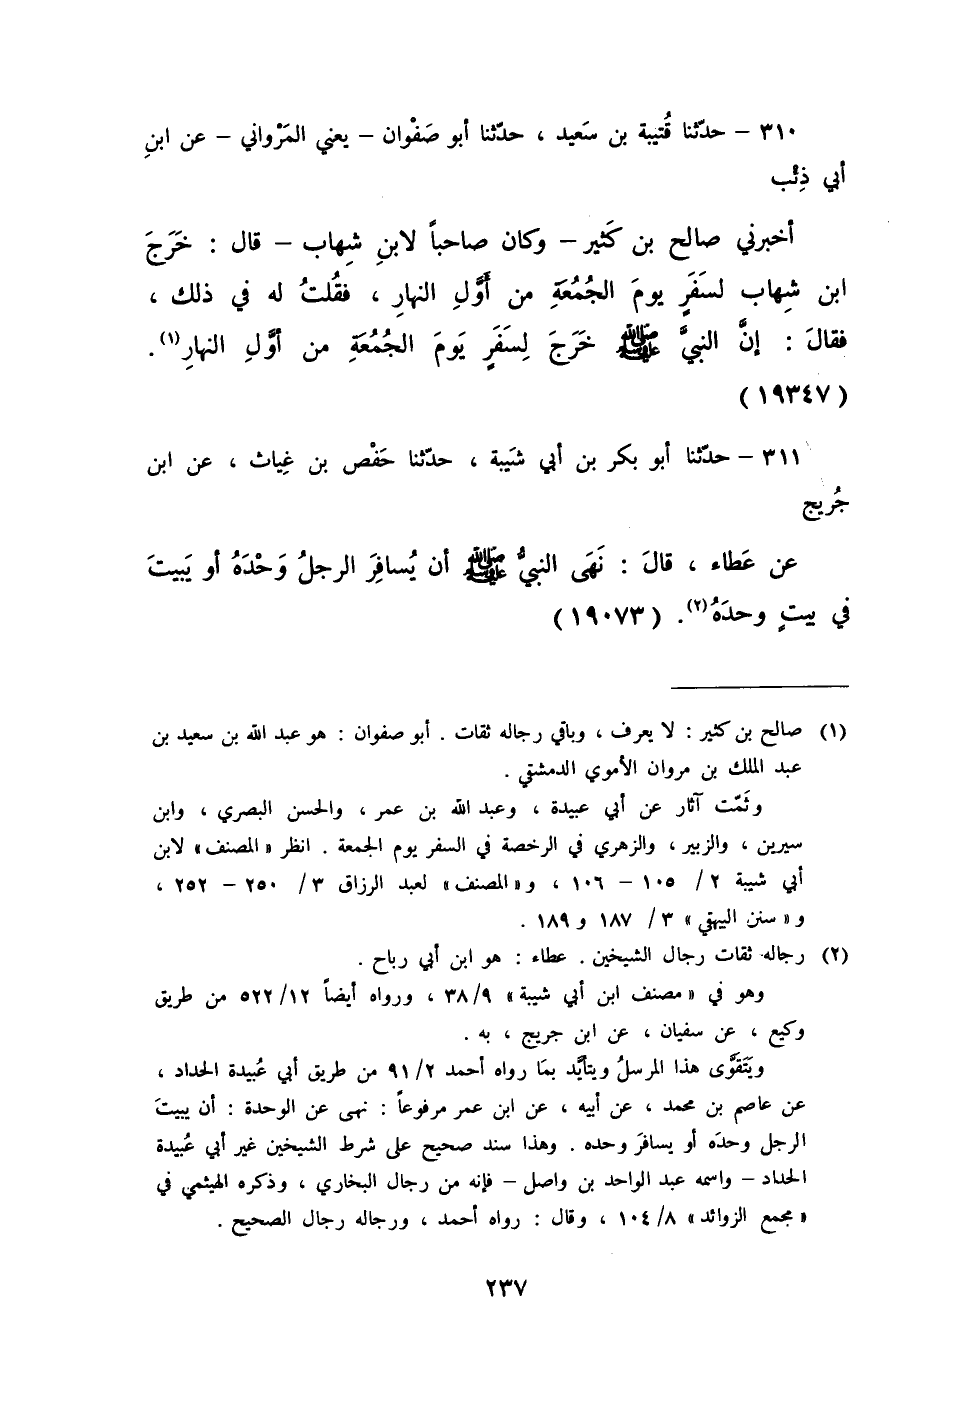 ٣١٠ – حدّثنا قُتيبة بن سَعيد ، حدّثنا أبو صَفْوان – يعني المَرْواني – عن ابنِ
أبي ذِئْب
أخبرني صالح بن كَثير – وكان صاحباً لابنِ شِهاب – قال : خَرَجَ
ابن شِهاب لسَفَرٍ يومَ الجُمُعَةِ من أَوَّلِ النهارِ ، فقُلتُ له في ذلك ،
فقالَ : إنَّ النبيَّ ﷺ خَرَجَ لِسَفَرٍ يَومَ الجُمُعَةِ من أوَّلِ النهارِ(١) .
(١٩٣٤٧)
٣١١ – حدّثنا أبو بكر بن أبي شَيبة ، حدّثنا حَفْص بن غِياث ، عن ابن
جُريج
عن عَطاء ، قالَ : نَهَى النبيُّ ﷺ أن يُسافِرَ الرجلُ وَحْدَهُ أو يَبيتَ
في بيتٍ وحدَهُ(٢) . (١٩٠٧٣)
(١) صالح بن كثير : لا يعرف ، وباقي رجاله ثقات . أبو صفوان : هو عبد الله بن سعيد بن
عبد الملك بن مروان الأموي الدمشقي .
وثَمّت آثار عن أبي عبيدة ، وعبد الله بن عمر ، والحسن البصري ، وابن
سيرين ، والزبير ، والزهري في الرخصة في السفر يوم الجمعة . انظر «المصنف» لابن
أبي شيبة ٢ / ١٠٥ – ١٠٦ ، و«المصنف» لعبد الرزاق ٣ / ٢٥٠ – ٢٥٢ ،
و «سنن البيهقي» ٣ / ١٨٧ و ١٨٩ .
(٢) رجاله ثقات رجال الشيخين . عطاء : هو ابن أبي رباح .
وهو في «مصنف ابن أبي شيبة» ٣٨/٩ ، ورواه أيضاً ٥٢٢/١٢ من طريق
وكيع ، عن سفيان ، عن ابن جريج ، به .
ويَتَقَوَّى هذا المرسلُ ويتأيَّد بمَا رواه أحمد ٩١/٢ من طريق أبي عُبيدة الحداد ،
عن عاصم بن محمد ، عن أبيه ، عن ابن عمر مرفوعاً : نهى عن الوحدة : أن يبيتَ
الرجل وحدَه أو يسافرَ وحده . وهذا سند صحيح على شرط الشيخين غير أبي عُبيدة
الحداد – واسمه عبد الواحد بن واصل – فإنه من رجال البخاري ، وذكره الهيثمي في
«مجمع الزوائد» ١٠٤/٨ ، وقال : رواه أحمد ، ورجاله رجال الصحيح .
٢٣٧